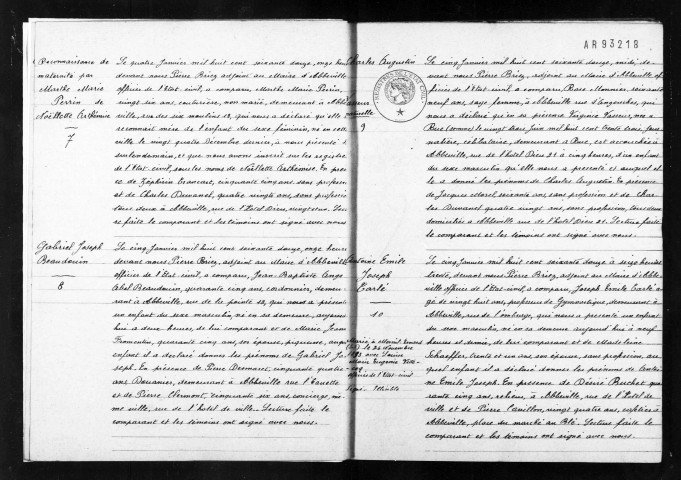 AR93218
Reconnaissance de
maternité par
Marthe Marie
Perrin de
Noëllotte Arthémise
7
Le quatre Janvier mil huit cent soixante douze, onze heures
devant nous Pierre Briez adjoint au Maire d'Abbeville
officier de l'Etat civil, a comparu, Marthe Marie Perrin,
vingt six ans, couturière, non mariée, demeurant à Abbe
ville, rue des six moulins 12, qui nous a déclaré qu'elle
reconnait mère de l'enfant du sexe féminin, né en cette
ville le vingt quatre Décembre dernier, à nous présenté
surlendemain, et que nous avons inscrit sur les registres
de l'Etat civil, sous les noms de Noëllotte Arthémise. En pres
ence de Zéphirin cinquante cinq ans, sans profession
et de Charles Dumanel, quatre vingts ans, sans profession
tous deux à Abbeville, rue de l'Hotel Dieu, vingt un. Lec
re faite le comparant et les témoins ont signé avec nous
Gabriel Joseph
Beaudouin
8
Le cinq Janvier mil huit cent soixante douze, onze heures
devant nous Pierre Briez, adjoint au Maire d'Abbeville
officier de l'Etat civil, a comparu, Jean-Baptiste Ange
Abel Beaudouin, quarante cinq ans, cordonnier, demeu
rant à Abbeville, rue de la pointe 12, qui nous a présenté
un enfant du sexe masculin, né en sa demeure, aujourd
hui à deux heures, de lui comparant et de Marie Jeanne
Fromentin, quarante cinq ans, son épouse, piqueuse, auquel
enfant il a déclaré donner les prénoms de Gabriel Jo
seph. En présence de Pierre Desmaret, cinquante quatre
ans Douanier, demeurant à Abbeville rue
et de Pierre Clermont, cinquante six ans, concierge, mê
me ville, rue de l'hotel de ville. Lecture faite le
comparant et les témoins ont signé avec nous.
Charles Augustin
Vasseur
naturelle
9
Le cinq Janvier mil huit cent soixante douze, midi, de
vant nous Pierre Briez, adjoint au Maire d'Abbeville of
ficier de l'Etat civil, a comparu, Rose Monnier, soixante
neuf ans, sage femme, à Abbeville rue qui
nous a déclaré qu'en sa présence Virginie Vasseur, née à
Rue (somme) le vingt deux Juin mil huit cent trente trois, jour
nalière, célibataire, demeurant à Rue, est accouchée à
Abbeville, rue de l'hotel Dieu 21 à cinq heures, d'un enfant
du sexe masculin qu'elle nous a présenté et auquel el
le a donné les prénoms de Charles Augustin. En présence
de Jacques soixante ans sans profession et de Char
les Dumanel quatre vingts ans, sans profession, tous deux
domiciliés à Abbeville rue de l'hotel Dieu 21. Lecture faite
le comparant et les témoins ont signé avec nous.
Antoine Emile
Joseph
Carlé
10
Marié à
le 24 Novembre
avec Louise
Marie Eugénie
officier de l'Etat-civil
Signé: Illisible
Le cinq Janvier mil huit cent soixante douze à seize heures
trente, devant nous Pierre Briez, adjoint au Maire d'Abbe
ville officier de l'Etat civil, a comparu, Joseph Emile Carlé â
gé de vingt huit ans, professeur de Gymnastique, demeurant à
Abbeville, rue de qui nous a présenté un enfant
du sexe masculin, né en sa demeure aujourd'hui à neuf
heures et demie, de lui comparant et de Madeleine
Schaeffer, trente et un ans, son épouse, sans profession, au
quel enfant il a déclaré donner les prénoms de Antoi
ne Emile Joseph. En présence de Désiré Buchet qua
rante cinq ans, relieur, à Abbeville, rue de l'hotel de
ville et de Pierre Canillon, vingt quatre ans, à
Abbeville, place du marché au blé. Lecture faite le
comparant et les témoins ont signé avec nous.